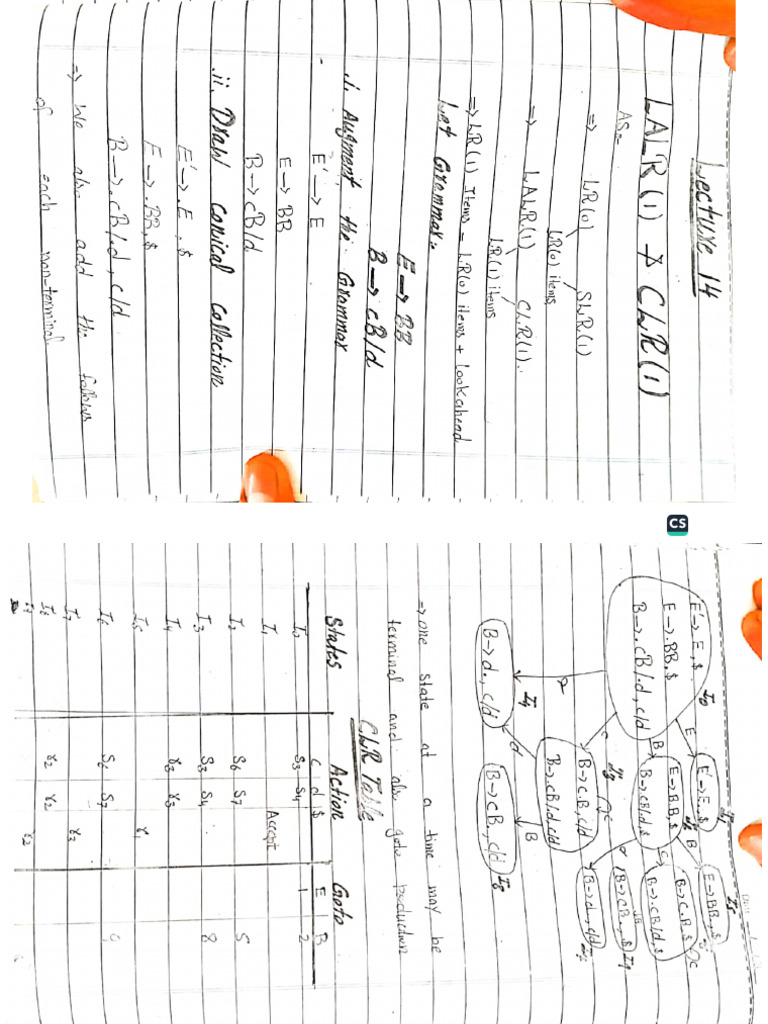 Lecture 14
LALR(1) & CLR(1)
AS:-
=> LR(0) SLR(1)
LR(0) items
=> LALR(1) CLR(1)..
LR(1) items
=> LR(1) Items = LR(0) items + lookahead
Let Grammar:-
E -> BB
B -> cB/d
.i. Augment the Grammar
E' -> E
E -> BB
B -> cB/d
.ii. Draw canical collection
E' -> .E , $
E -> .BB, $
B -> .cB/.d , c/d
=> We also add the follows
of each non-terminal
CS
E' -> .E, $
E -> .BB, $
B -> .cB/.d, c/d
I0
E
E' -> E., $
I1
B
E -> B.B, $
B -> .cB/.d, $
I2
B
E -> BB., $
I5
c
B -> c.B, $
B -> .cB/.d, $
c
B -> cB., $
I9
d
B -> d., c/d
c
I3
B -> c.B, c/d
B -> .cB/.d, c/d
c
d
I4
B -> d., c/d
d
B
B -> cB., c/d
I8
=> one state at a time may be
terminal and also goto production
CLR Table
States Action Goto
c d $ E B
I0 S3 S4 1 2
I1 Accept
I2 S6 S7 5
I3 S3 S4 8
I4 r3 r3
I5 r1
I6 S6 S7 9
I7 r3
I8 r2 r2
I9 r2